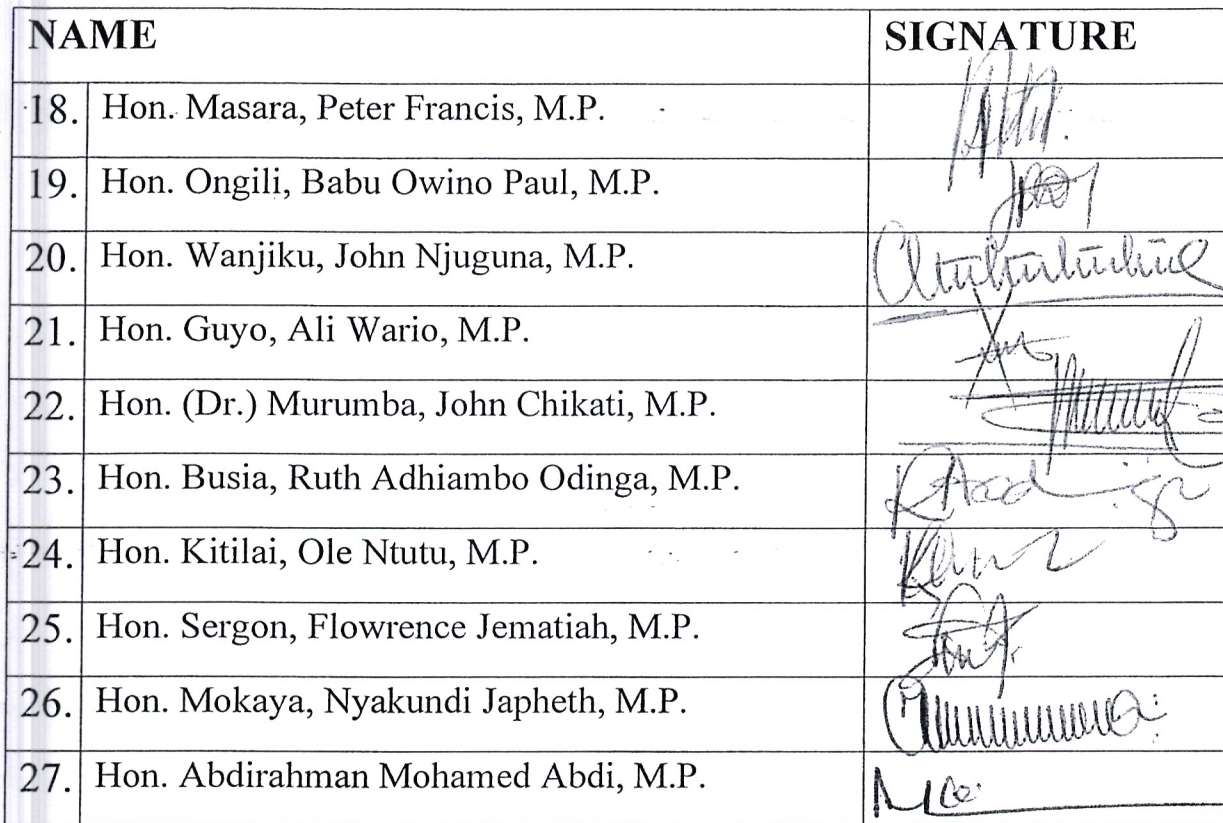 NAME SIGNATURE
18. Hon. Masara, Peter Francis, M.P.
19. Hon. Ongili, Babu Owino Paul, M.P.
20. Hon. Wanjiku, John Njuguna, M.P.
21. Hon. Guyo, Ali Wario, M.P.
22. Hon. (Dr.) Murumba, John Chikati, M.P.
23. Hon. Busia, Ruth Adhiambo Odinga, M.P.
24. Hon. Kitilai, Ole Ntutu, M.P.
25. Hon. Sergon, Flowrence Jematiah, M.P.
26. Hon. Mokaya, Nyakundi Japheth, M.P.
27. Hon. Abdirahman Mohamed Abdi, M.P.